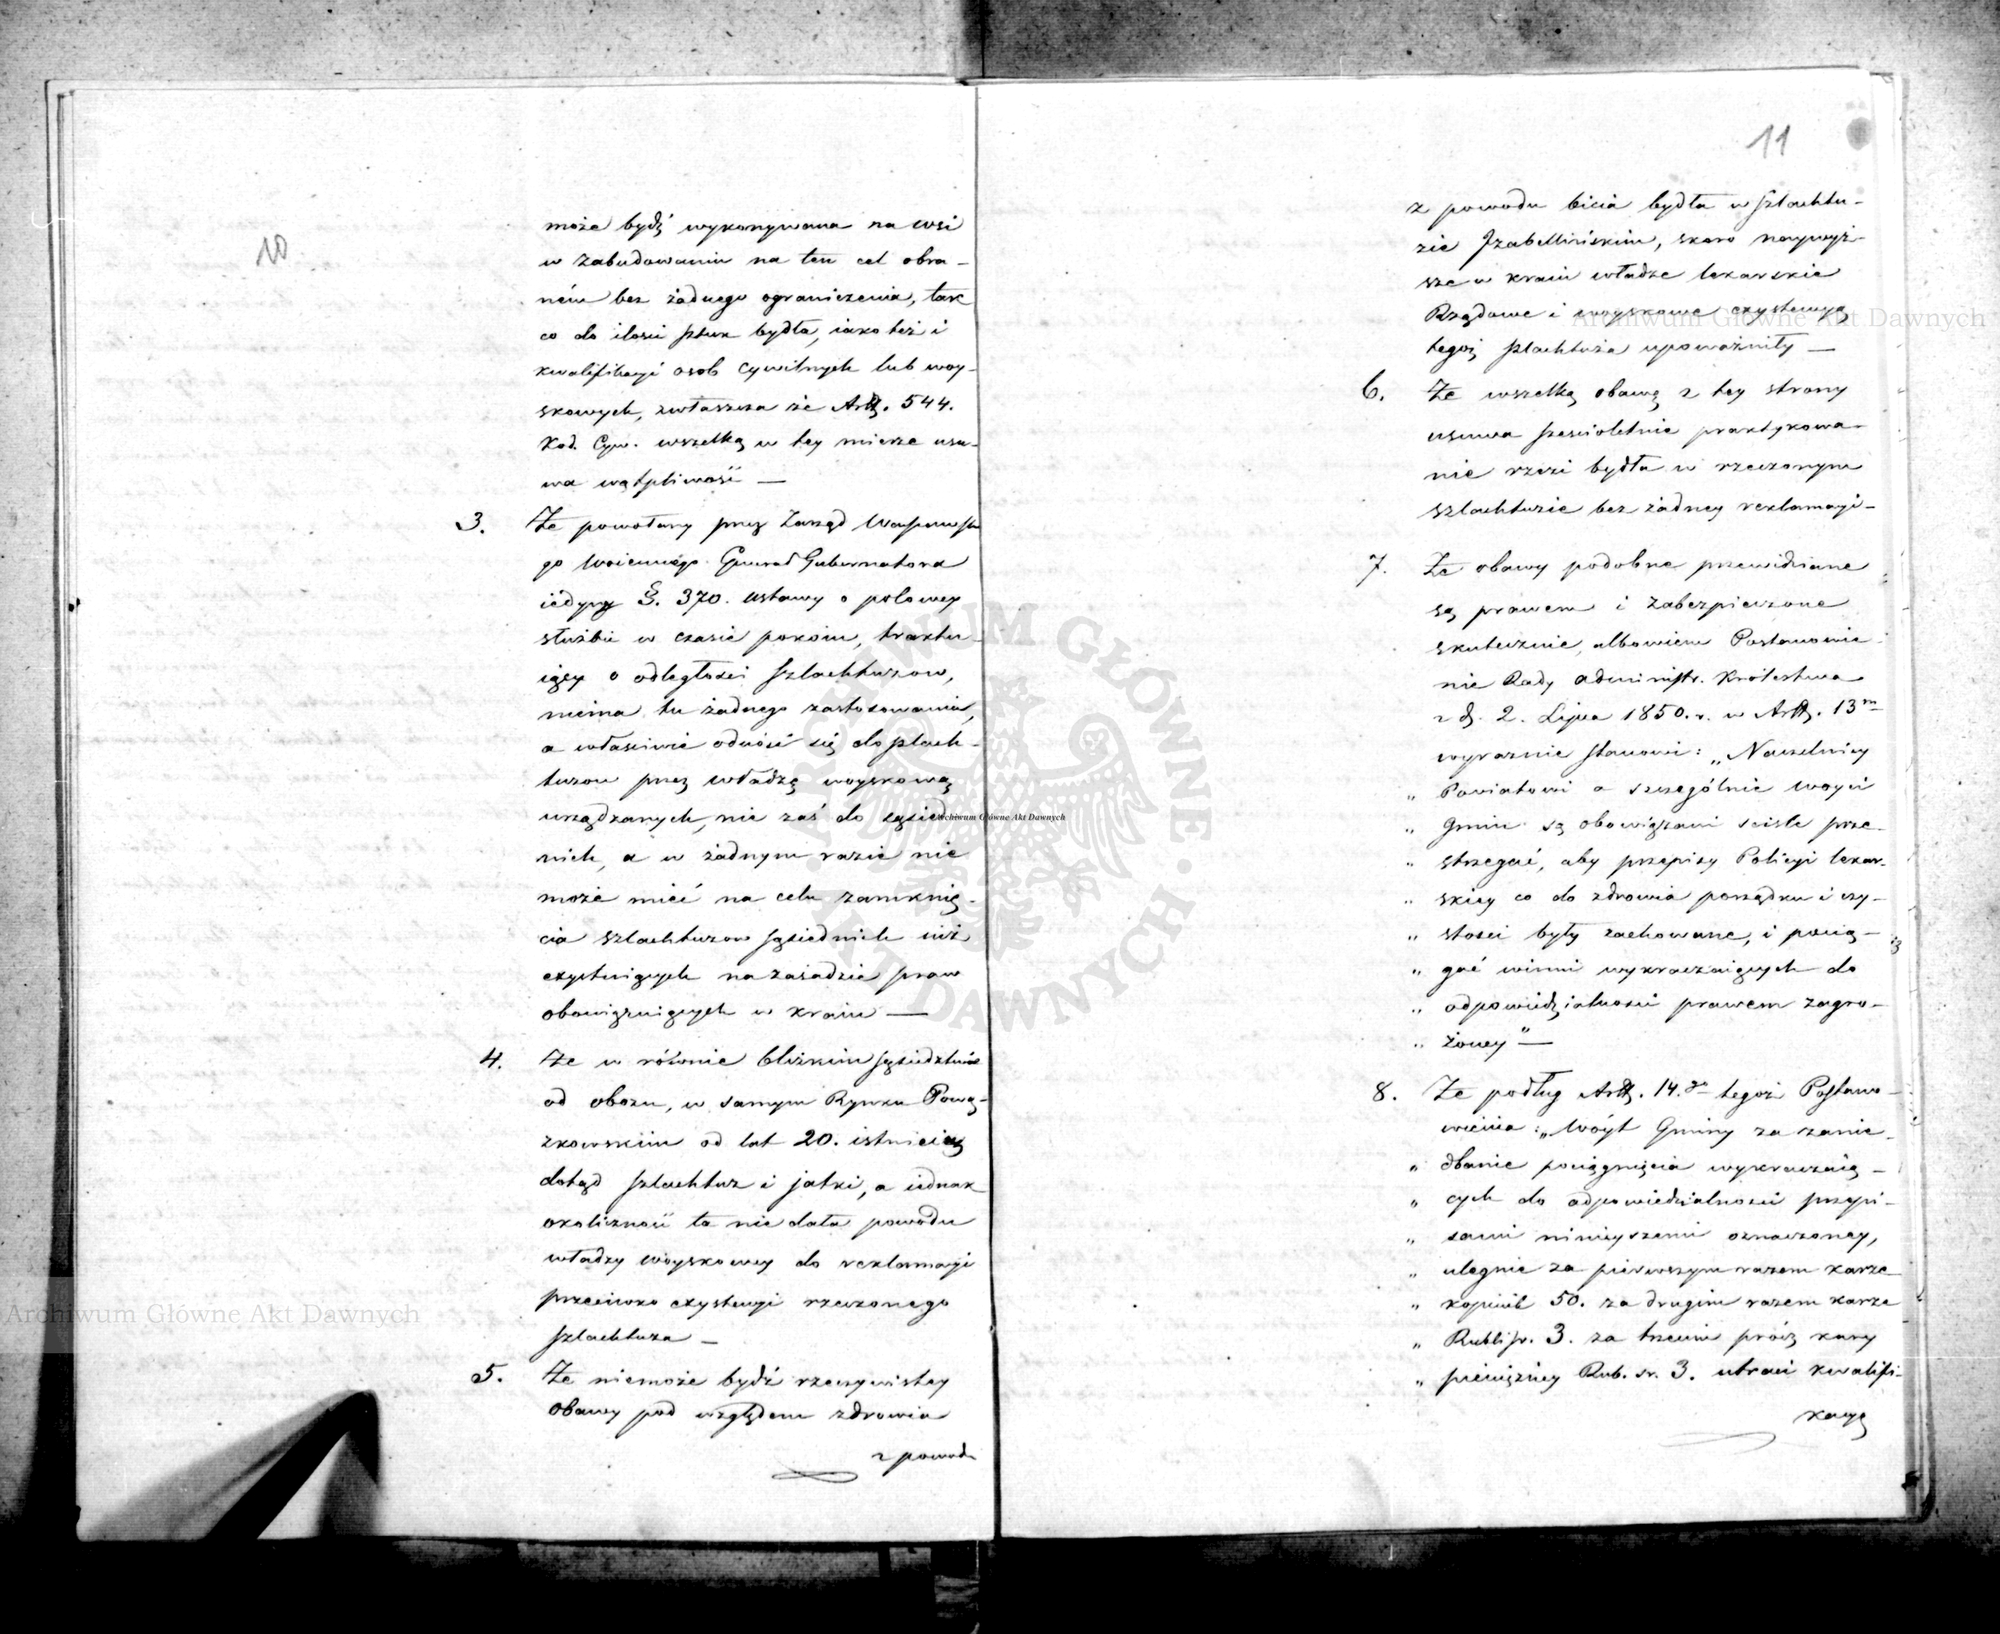 10
może bydź wykonywana na wsi
w zabudowaniu na ten cel obra-
nём bez żadnego ograniczenia, tak
co do ilości sztuk bydła, iako też i
kwalifikacyi osob cywilnych lub woy-
skowych, zwłaszcza że Artt. 544.
Kod. Cyw. wszelką w tey mierze usu-
wa wątpliwość —
3. Że powołany przez Zarząd Warszawskie
go Woiennego Generał Gubernatora
iedynie §. 370. ustawy o polowey
służbie w czasie pokoiu, traktu-
iący o odległości szlachtuzow,
niema tu żadnego zastosowania,
a właściwie odnosi się do szlach-
tuzow przez władzę woyskową
urządzanych, nie zaś do sąsied
nich, a w żadnym razie nie
może mieć na celu zamknię-
cia szlachtuzow sąsiednich iuż
exystuiących na zasadzie praw
obowiązuiących w kraiu —
4. Że w równie blizkim sąsiedztwie
od obozu, w samym Rynku Pową-
zkowskim od lat 20. istnieią
dotąd szlachtuz i jatki, a iednak
okoliczność ta nie dała powodu
władzy woyskowey do reklamacyi
przeciwko exystencyi rzeczonego
szlachtuza —
5. Że niemoże bydź rzeczywistey
obawy pod względem zdrowia
z powodu
11
z powodu bicia bydła w szlachtu-
zie Izabellińskim, skoro naywyż-
sze w kraiu władze lekarskie
Rządowe i woyskowe exystencyą
tegoż szlachtuza upoważniły —
6. Że wszelką obawę z tey strony
usuwa sześcioletnie praktykowa-
nie rzezi bydła w rzeczonym
szlachtuzie bez żadney reklamacyi-
7. Że obawy podobne przewidziane
są prawem i zabezpieczone
skutecznie, albowiem Postanowie-
nie Rady Administr. Królestwa
z d. 2. Lipca 1850. r. w Artt. 13m
wyraźnie stanowi: „Naczelnicy
„ Powiatowi a szczególnie Woyci
„ Gmin są obowiązani ściśle prze-
„ strzegać, aby przepisy Policyi lekar-
„ skiey co do zdrowia porządku i czy-
„ stości były zachowane, i pocią-
„ gać winni wykraczaiących do
„ odpowiedzialności prawem zagro-
„ żoney” —
8. Że podług Artt. 14.go tegoż Postano-
wienia: „Wóyt Gminy za zanie-
„ dbanie pociągnięcia wykraczaią-
„ cych do odpowiedzialności przepi-
„ sami ninieyszemi oznaczoney,
„ ulegnie za pierwszym razem karze
„ kopiiek 50. za drugim razem karze
„ Rubli sr. 3. za trzecim prócz kary
„ pieniężney Rub. sr. 3. utraci kwalifi-
kacyę
Archiwum Główne Akt Dawnych
Archiwum Główne Akt Dawnych
Archiwum Główne Akt Dawnych
ARCHIWUM GŁÓWNE · AKT DAWNYCH ·